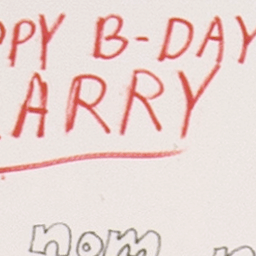 PPY B-DAY
ARRY
nom